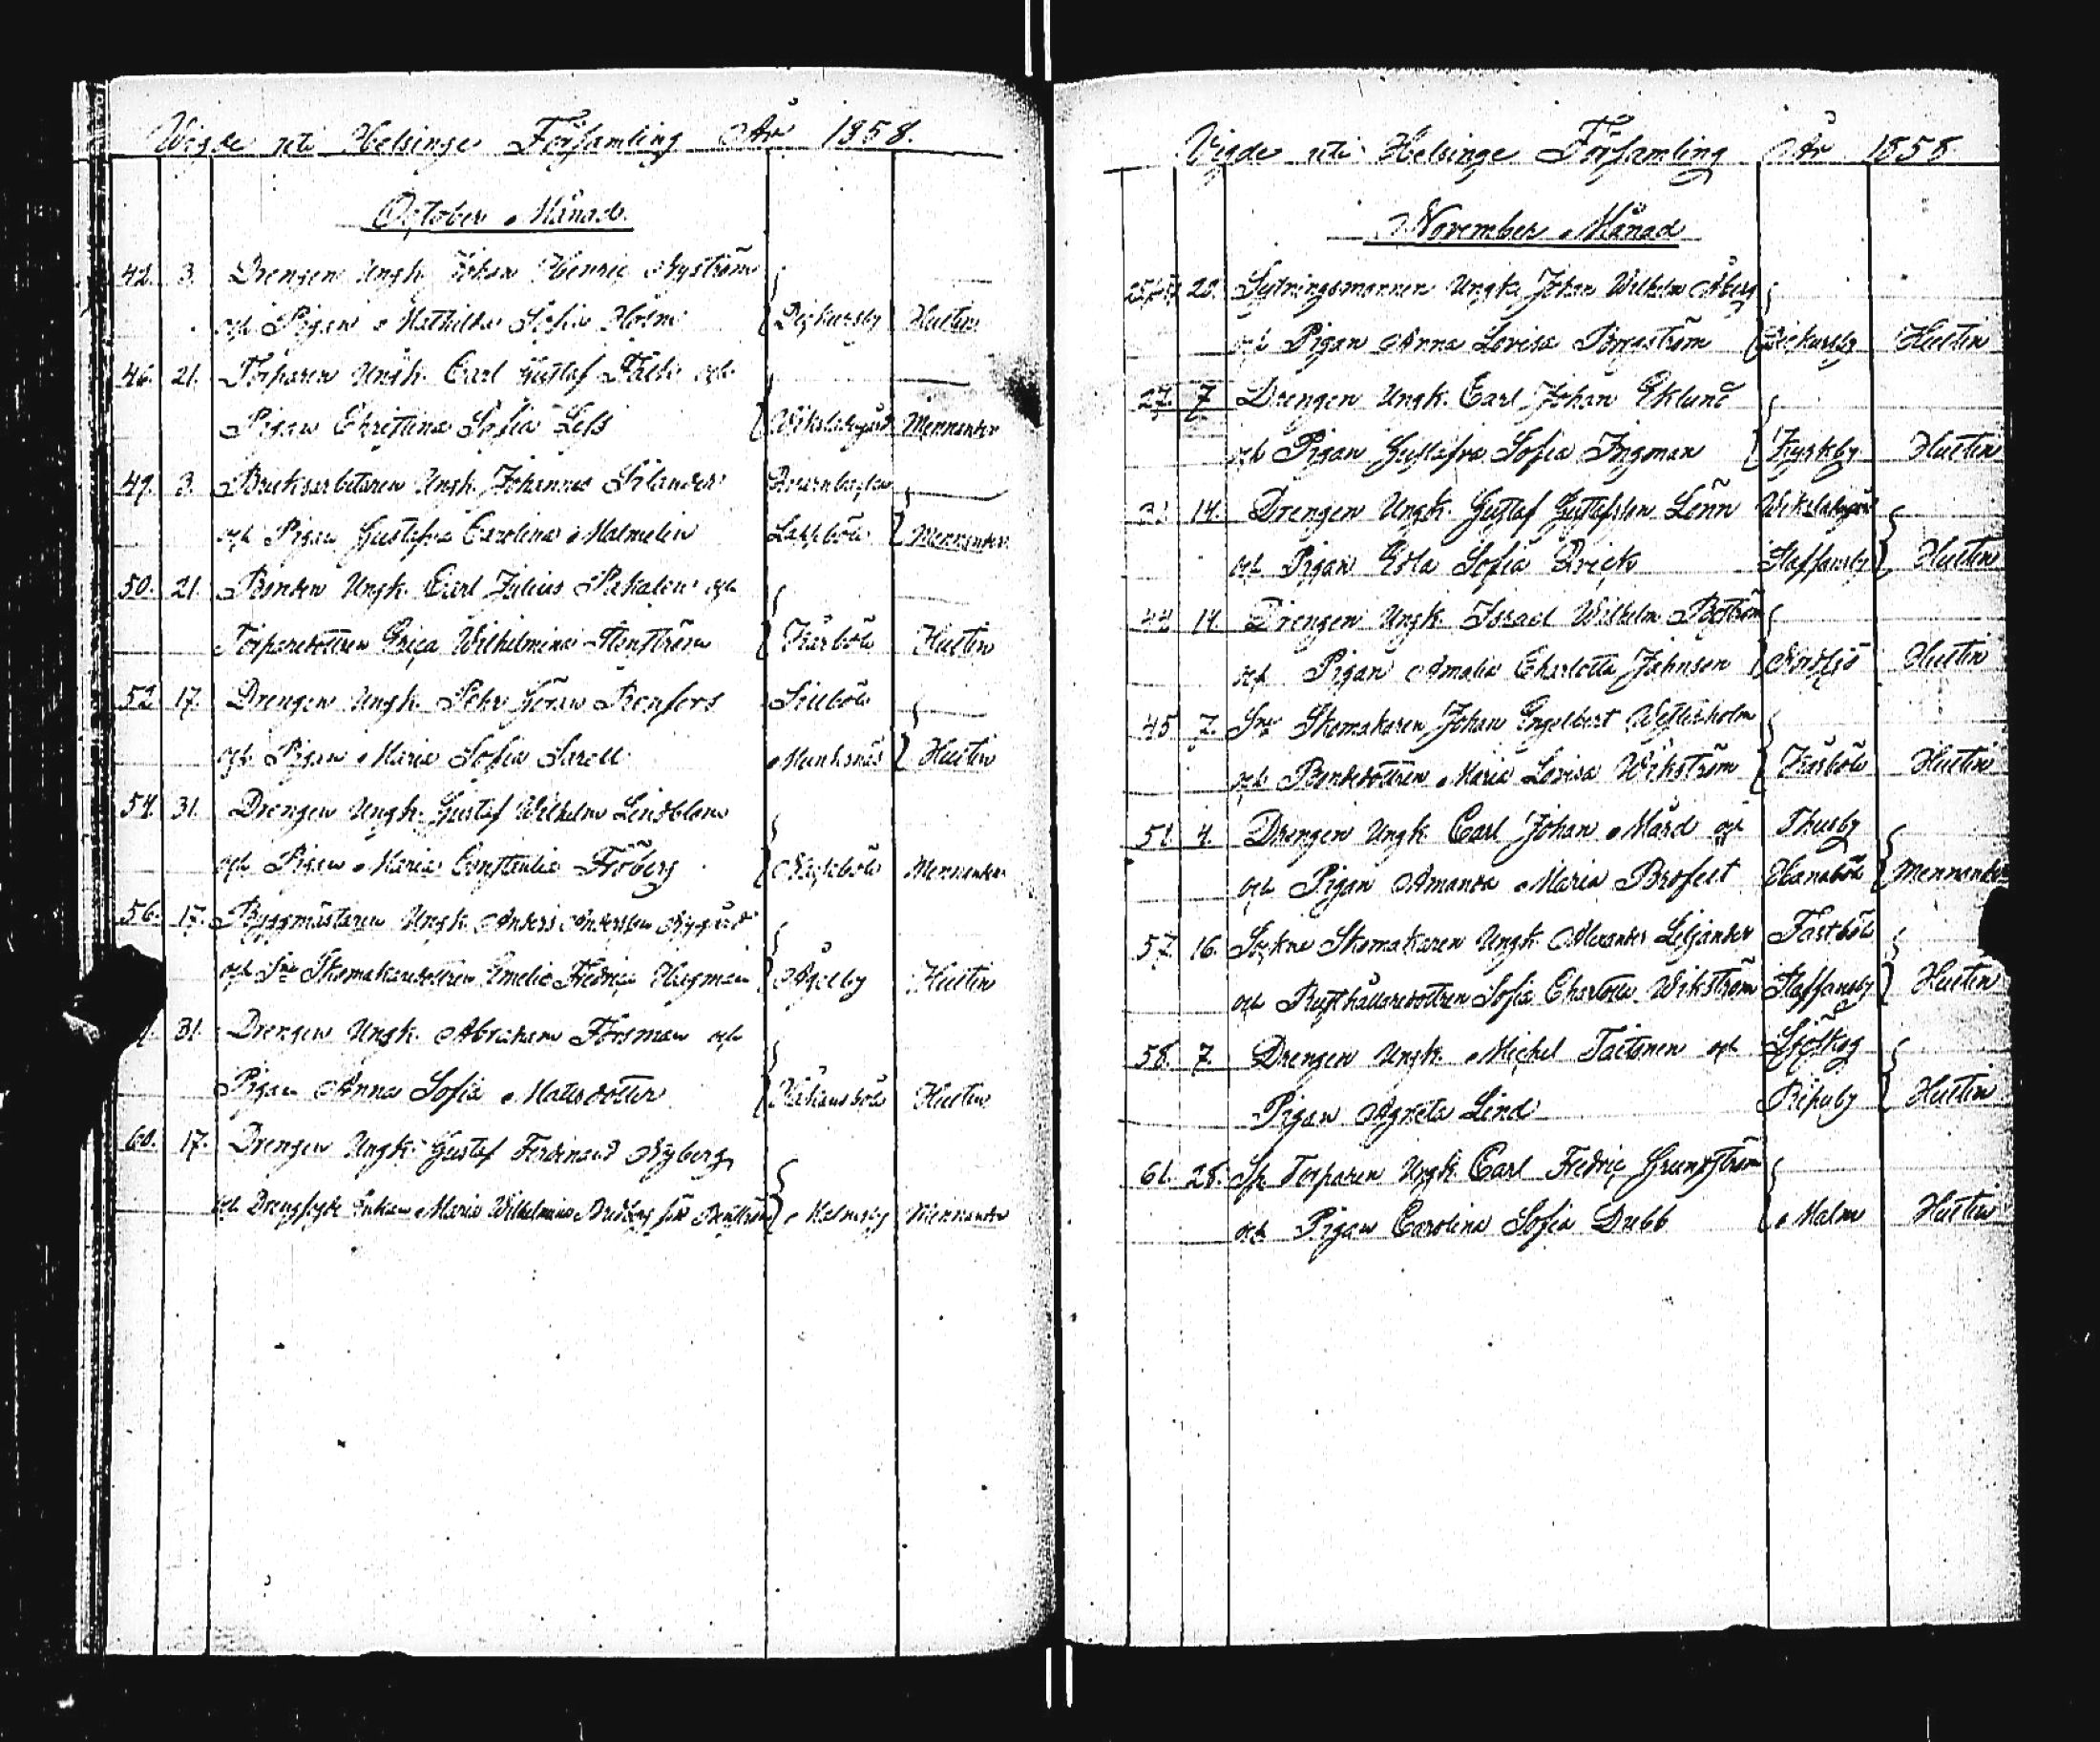 Wigde uti Helsinge Församling År 1858.
October Månad.
42. 3. Drengen Ungk. Johan Henric Nyström
och Pigan Mathilda Sofia Holm Dickursby Hultin
46. 21. Torparen Ungk. Carl Gustaf Fält och
Pigan Christina Sofia Lefs Wikslabgård Mennander
49. 3. Bruksarbetaren Ungk. Johannes Silander
och Pigan Gustafva Carolina Malmelin Lappböle Mennander
50. 21. Bonden Ungk. Carl Julius och
Torparedottren Erica Wilhelmina Stenström Kårböle Hultin
52. 17. Drengen Ungk. Pehr Göran Renfors Sillböle
och Pigan Maria Sofia Sarell Munksnäs Hultin
54. 31. Drengen Ungk. Gustaf Wilhelm Lindblom
och Pigan Maria Constantia Fröberg Nackböle Mennander
56. 17. Byggmästaren Ungk. Anders Andersson
och Sne Skomakaredottren Emelie Fredrica Hagman Ågelby Hultin
31. Drengen Ungk. Abraham Forsman och
Pigan Anna Sofia Matsdotter Håkansböle Hultin
60. 17. Drengen Ungk. Gustaf Ferdinand Nyberg
och Drengfogde Enkan Maria Wilhelmina Malmsby Mennander
Vigde uti Helsinge Församling År 1858
November Månad
28. Sytningsmannen Ungk. Johan Wilhelm Åberg
och Pigan Anna Lovisa Borgström Dickursby Hultin
27. 7 Drengen Ungk. Carl Johan Eklund
och Pigan Gustafva Sofia Ingman Kyrkby Hultin
14. Drengen Ungk. Gustaf Gustafsson Lönn Wikslabgård
och Pigan Edla Sofia Qvick Staffansby Hultin
44 14. Drengen Ungk. Israel Wilhelm Boström
och Pigan Amalia Charlotta Jahnsen Nordsjö Hultin
45 7. Sne Skomakaren Johan Engelbert Westerholm
och Bondedottren Maria Lovisa Wikström Kårböle Hultin
51. 4. Drengen Ungk. Carl Johan Mård och Thusby
och Pigan Amanda Maria Brofelt Hanaböle Mennander
57. 16. Sockne Skomakaren Ungk. Alexander Liljander Fastböle
och Rusthållaredottren Sofia Charlotta Wikström Staffansby Hultin
58. 7. Drengen Ungk. Michel Taitonen och Sjöskog
Pigan Agneta Lind Ripuby Hultin
61. 28. Sp. Torparen Ungk. Carl Fredric Grundström
och Pigan Carolina Sofia Dubb Malm Hultin